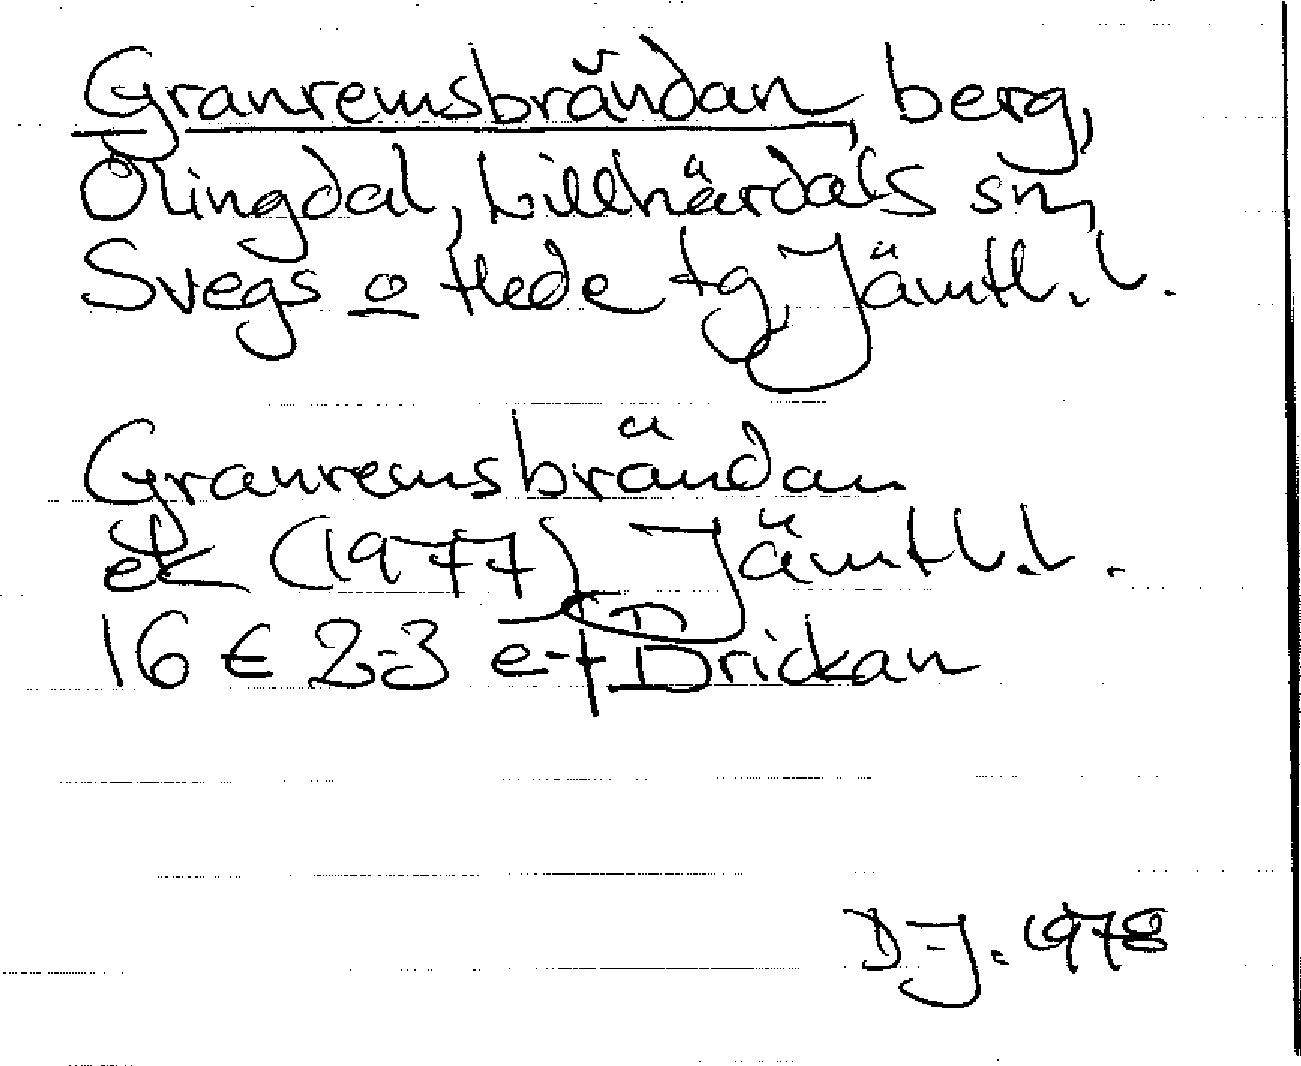 Granremsbrändan, berg,
Olingdal, Lillhärdals sn,
Svegs o Hede tg, Jämtl. l.
Granremsbrändan
ek (1977) Jämtl. l.
16 E 2-3 e-f Drickan
D-J. 1978